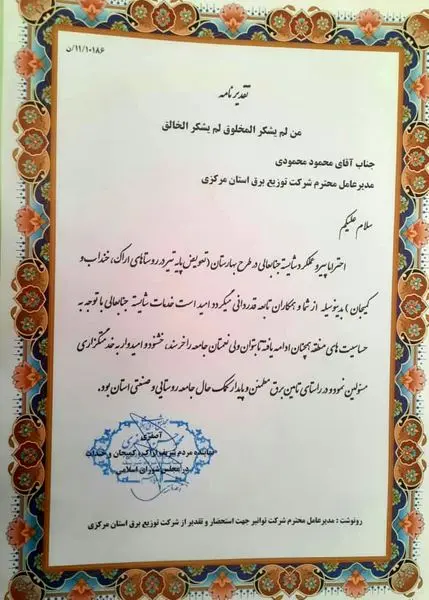 ۱۱/۱۰۱۸۶/ن
تقدیرنامه
من لم یشکر المخلوق لم یشکر الخالق
جناب آقای محمود محمودی
مدیرعامل محترم شرکت توزیع برق استان مرکزی
سلام علیکم
احتراما پیرو عملکرد شایسته جنابعالی در طرح بهارستان (تعویض پایه تیر در روستاهای اراک، خنداب و
کمیجان) بدینوسیله از شما و همکاران تابعه قدردانی میگردد امید است خدمات شایسته جنابعالی با توجه به
حساسیت های منطقه همچنان ادامه یافته تا بتوان ولی نعمتان جامعه را خرسند، خشنود و امیدوار به خدمتگزاری
مسئولین نمود و در راستای تامین برق مطمئن و پایدار کمک حال جامعه روستایی و صنعتی استان بود.
آصفری
نماینده مردم شریف اراک، کمیجان و خنداب
در مجلس شورای اسلامی
رونوشت : مدیرعامل محترم شرکت توانیر جهت استحضار و تقدیر از شرکت توزیع برق استان مرکزی